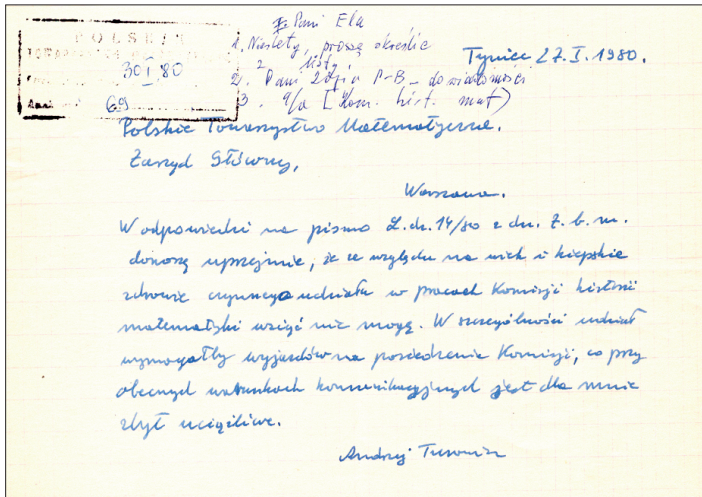 P O L S K I E
30 I 80
69
Pani Ela
1. Niestety, proszę skreślić
z listy.
2. Pani Zofia P-B – do wiadomości
3. a/a [Kom. hist. mat)
Tyniec 27.I.1980.
Polskie Towarzystwo Matematyczne.
Zarząd Główny,
Warszawa.
W odpowiedzi na pismo L.dz. 14/80 z dn. 7. b.m.
donoszę uprzejmie, że ze względu na wiek i kiepskie
zdrowie czynnego udziału w pracach Komisji historii
matematyki wziąć nie mogę. W szczególności udział
wymagałby wyjazdów na posiedzenie Komisji, co przy
obecnych warunkach komunikacyjnych jest dla mnie
zbyt uciążliwe.
Andrzej Turowicz